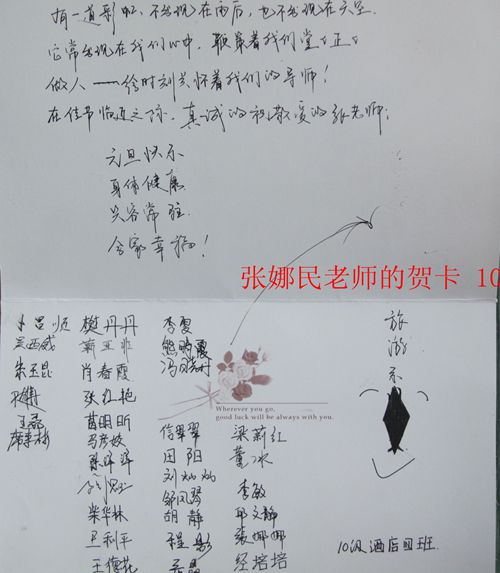 有一道彩虹，不出现在雨后，也不出现在天空，
它常出现在我们心中，鞭策着我们堂堂正正
做人——给时刻关怀着我们的导师！
在佳节临近之际，真诚的祝敬爱的张老师：
元旦快乐
身体健康
笑容常驻
合家幸福！
张娜民老师的贺卡 10
樊丹丹 李夏
吴西威
朱玉昆 肖春霞
张红艳
苗明昕
马彦姣 信翠翠 梁莉红
田阳 董冰
刘灿灿
邹凤琴 李敏
柴华林 胡静 邱文静
卫利平 程彤 张娜娜
王德花 经培培
Wherever you go,
good luck will be always with you.
旅
游
系
10级酒店四班